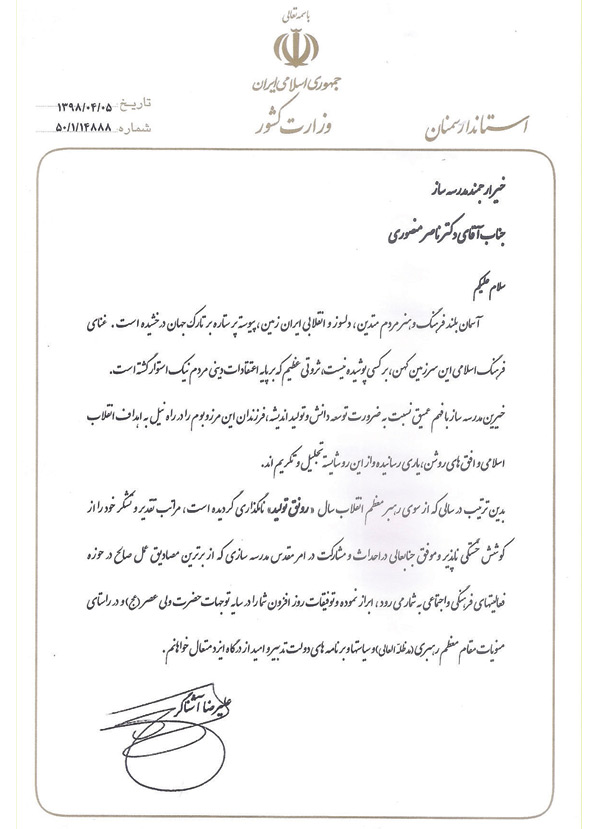 باسمه تعالی
جمهوری اسلامی ایران
وزارت کشور
استاندار سمنان
تاریخ ۱۳۹۸/۰۴/۰۵
شماره ۵۰/۱/۱۴۸۸۸
خیر ارجمند مدرسه ساز
جناب آقای دکتر ناصر منصوری
سلام علیکم
آسمان بلند فرهنگ و هنر مردم متدین، دلسوز و انقلابی ایران زمین، پیوسته پر ستاره بر تارک جهان درخشیده است. غنای
فرهنگ اسلامی این سرزمین کهن، بر کسی پوشیده نیست، ثروتی عظیم که بر پایه اعتقادات دینی مردم نیک استوار گشته است.
خیرین مدرسه ساز با فهم عمیق نسبت به ضرورت توسعه دانش و تولید اندیشه، فرزندان این مرز و بوم را در راه نیل به اهداف انقلاب
اسلامی و افق های روشن، یاری رسانیده و از این رو شایسته تجلیل و تکریم اند.
بدین ترتیب در سالی که از سوی رهبر معظم انقلاب سال «رونق تولید» نامگذاری گردیده است، مراتب تقدیر و تشکر خود را از
کوشش خستگی ناپذیر و موفق جنابعالی در احداث و مشارکت در امر مقدس مدرسه سازی که از برترین مصادیق عمل صالح در حوزه
فعالیتهای فرهنگی و اجتماعی به شمار می رود، ابراز نموده و توفیقات روز افزون شما را در سایه توجهات حضرت ولی عصر (عج) و در راستای
منویات مقام معظم رهبری (مدظله العالی) و سیاستها و برنامه های دولت تدبیر و امید از درگاه ایزد متعال خواهانم.
علیرضا آشناگر